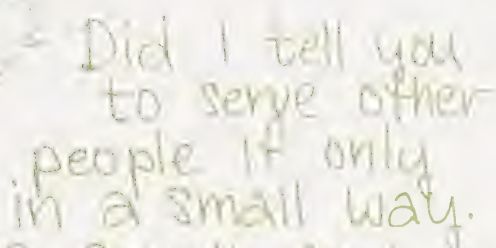 - Did I tell you
to serve other
people if only
in a small way.